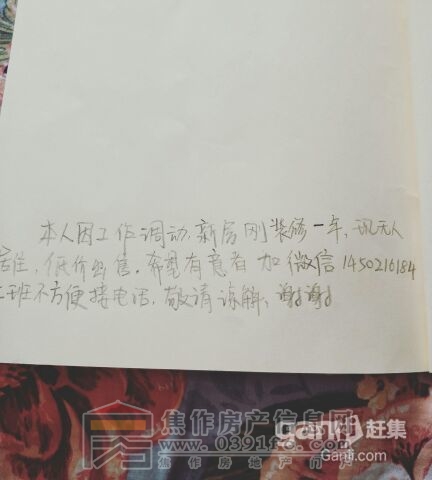 本人因工作调动,新房刚装修一年,现无人
居住,低价出售,希望有意者加微信1450216184
上班不方便接电话,敬请谅解,谢谢
焦作房产信息网
www.0391fc.com
焦作房地产门户
ganji 赶集
Ganji.com